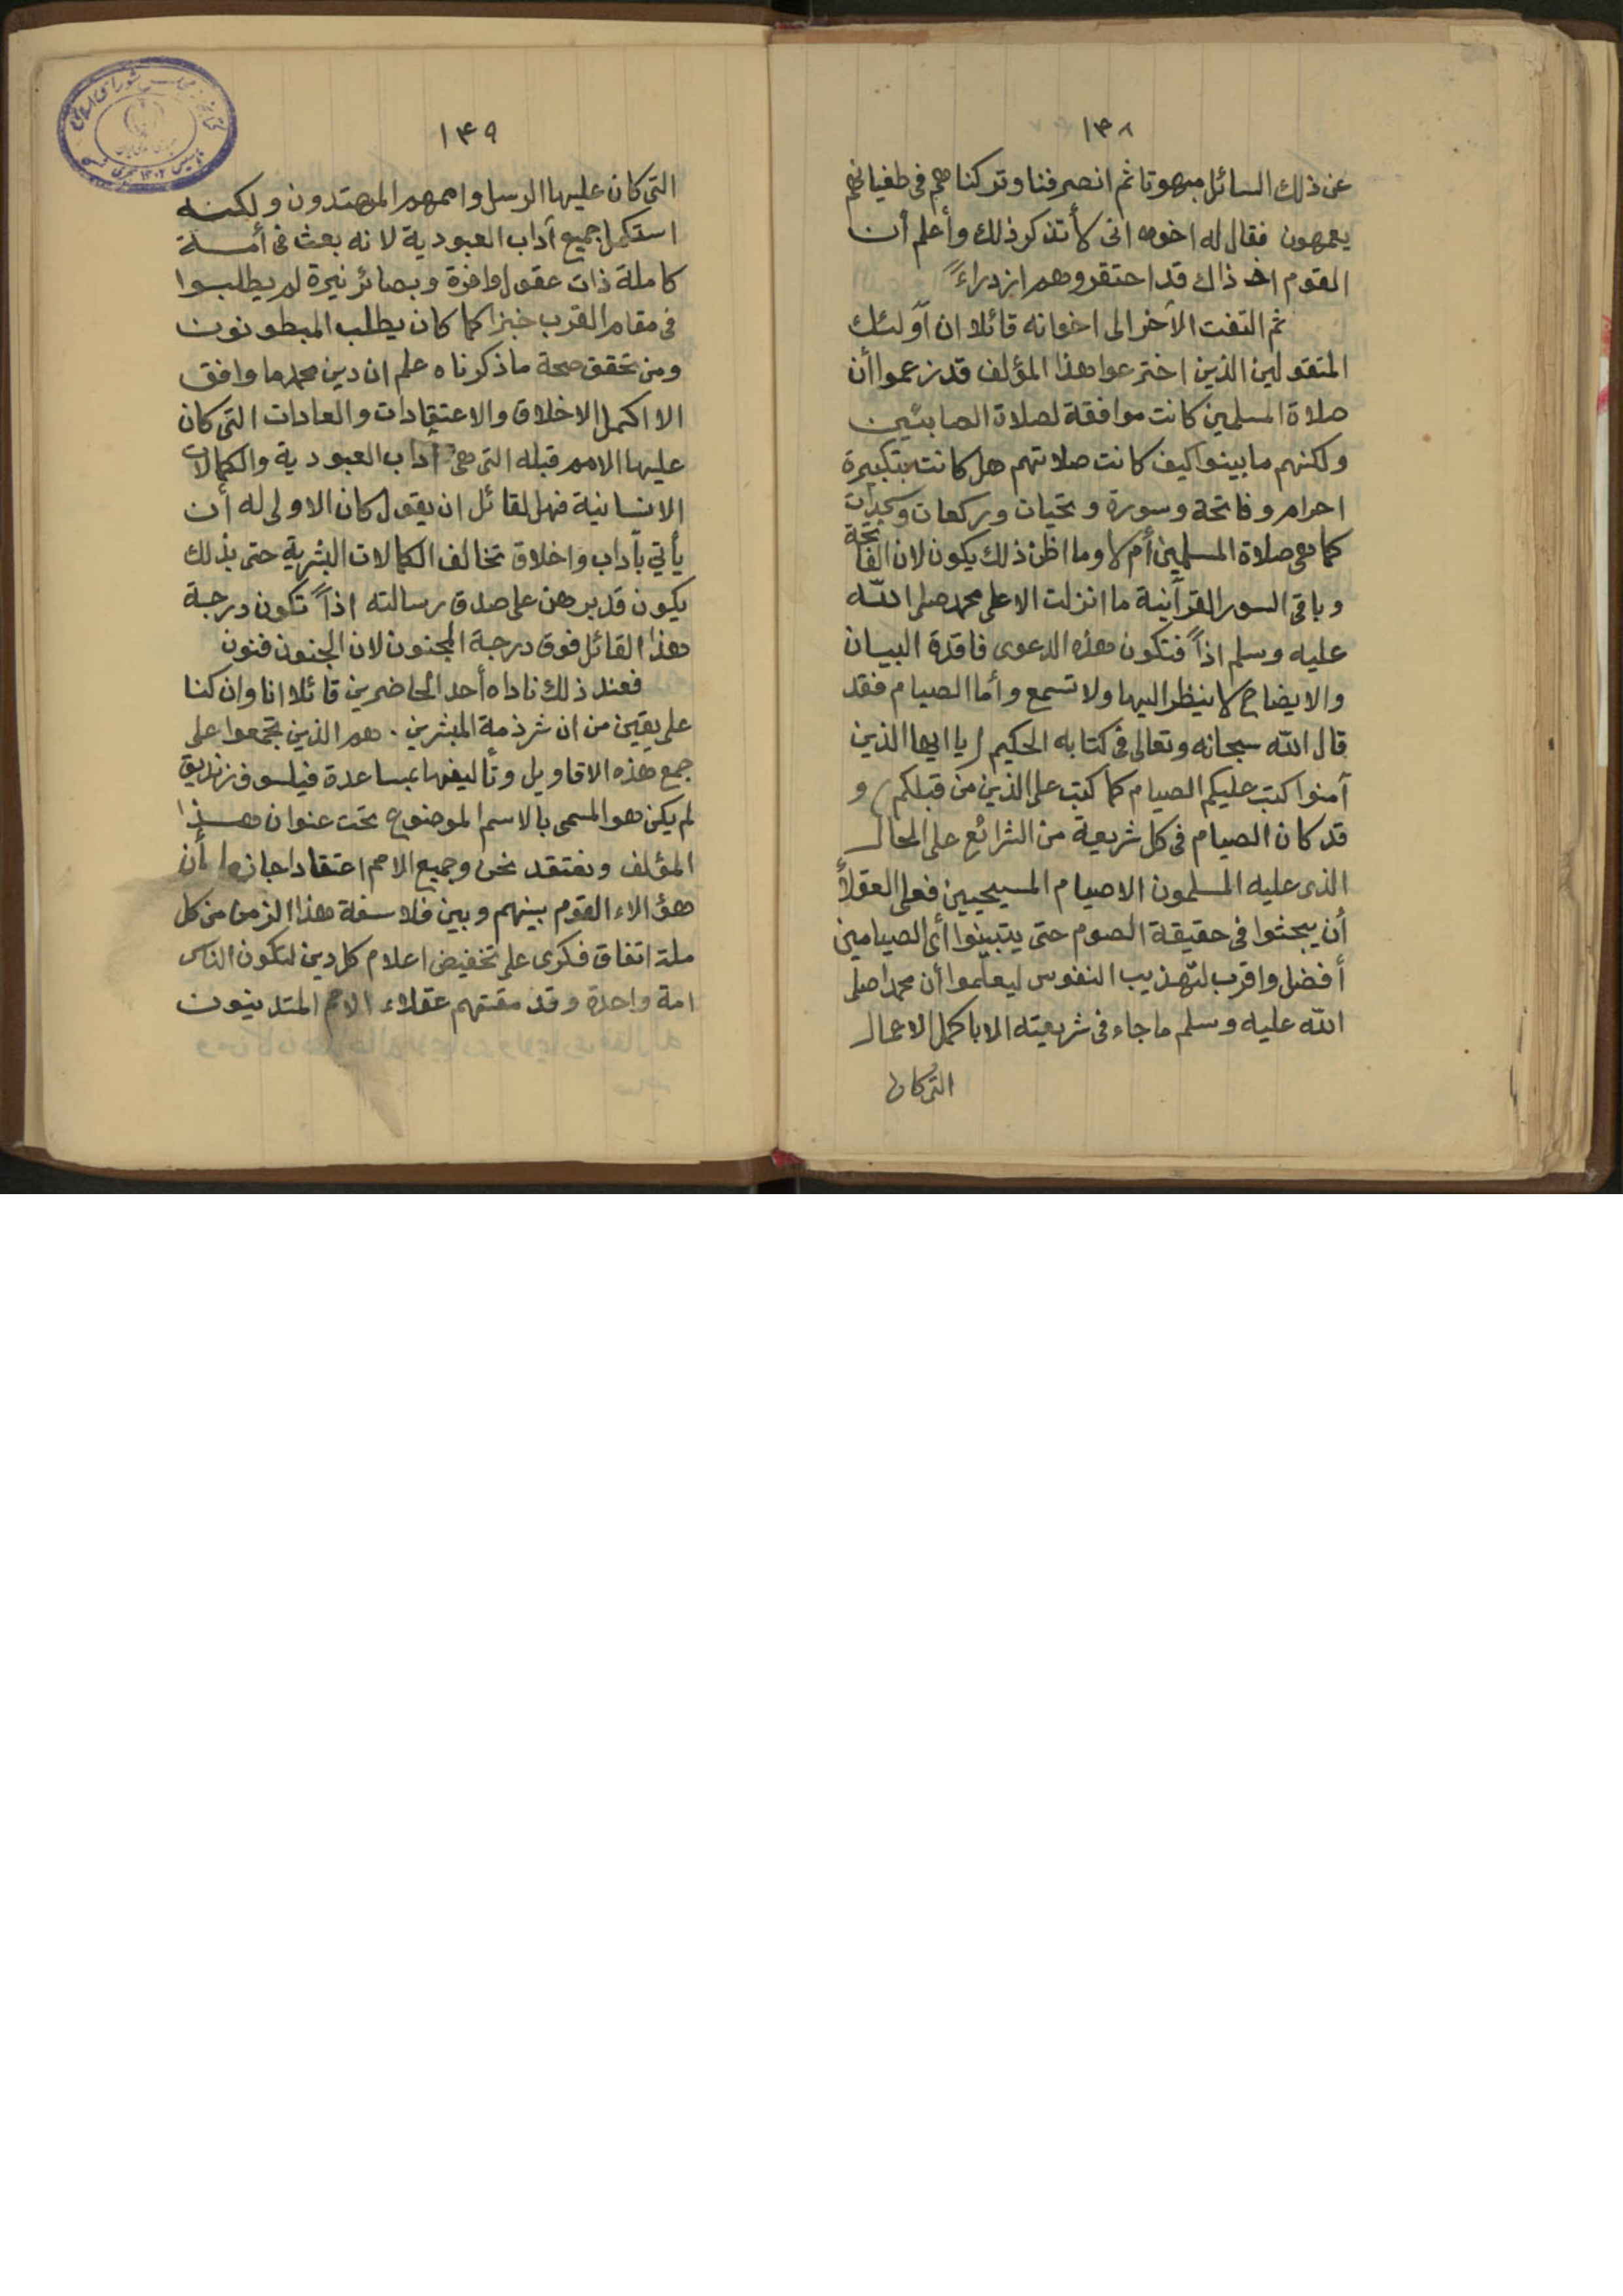 ١٣٨
عن ذلك السائل مبهوتا ثم انصرفنا وتركناهم في طغيانهم
يعمهون فقال له اخوه انى لأتذكر ذلك وأعلم أن
القوم اذ ذاك قد احتقروهم ازدراءً
ثم التفت الآخر الى اخوانه قائلا ان أولئك
المتقولين الذين اخترعوا هذا المؤلف قد زعموا أن
صلاة المسلمين كانت موافقة لصلاة الصابئين
ولكنهم ما بينوا كيف كانت صلاتهم هل كانت بتكبيرة
احرام وفاتحة وسورة وتحيات وركعات وسجدات
كما هى صلاة المسلمين أم لا وما اظن ذلك يكون لان الفاتحة
وباقى السور القرآنية ما انزلت الا على محمد صلى الله
عليه وسلم اذاً فتكون هذه الدعوى فاقدة البيان
والايضاح لا ينظر اليها ولا تسمع وأما الصيام فقد
قال الله سبحانه وتعالى فى كتابه الحكيم (يا ايها الذين
آمنوا كتب عليكم الصيام كما كتب على الذين من قبلكم) و
قد كان الصيام فى كل شريعة من الشرائع على الحال
الذى عليه المسلمون الا صيام المسيحيين فعلى العقلأ
أن يبحثوا فى حقيقة الصوم حتى يتبينوا أى الصيامين
أفضل واقرب لتهذيب النفوس ليعلموا أن محمدا صلى
الله عليه وسلم ما جاء فى شريعته الا باكمل الاعمال
التى كان
١٣٩
التى كان عليها الرسل واممهم المهتدون ولكنه
استكمل جميع آداب العبودية لانه بعث فى أمة
كاملة ذات عقول وافرة وبصائر نيرة لم يطلبوا
فى مقام القرب خبزا كما كان يطلب المبطونون
ومن تحقق صحة ما ذكرناه علم ان دين محمد ما وافق
الا اكمل الاخلاق والاعتقادات والعادات التى كان
عليها الامم قبله التى هى آداب العبودية والكمالات
الانسانية فهل لقائل ان يقول كان الاولى له أن
يأتي بآداب واخلاق تخالف الكمالات البشرية حتى بذلك
يكون قد برهن على صدق رسالته اذاً تكون درجة
هذا القائل فوق درجة المجنون لان الجنون فنون
فعند ذلك ناداه أحد الحاضرين قائلا انا وان كنا
على يقين من ان شرذمة المبشرين . هم الذين تجمعوا على
جمع هذه الاقاويل وتأليفها بمساعدة فيلسوف زنديق
لم يكن هو المسمى بالاسم الموضوع تحت عنوان هذا
المؤلف ونعتقد نحن وجميع الامم اعتقادا جازما بأن
هؤلاء القوم بينهم وبين فلاسفة هذا الزمن من كل
ملة اتفاق فكرى على تخفيض اعلام كل دين لتكون الناس
امة واحدة وقد مقتهم عقلاء الامم المتدينون